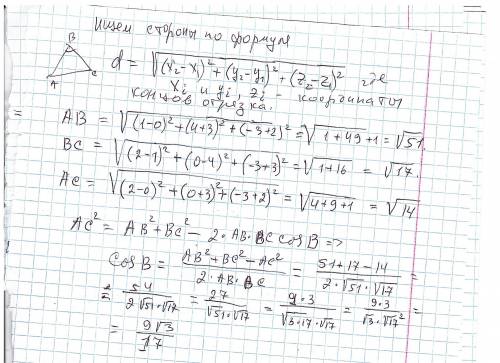 Ищем стороны по формуле
B
A
C
d = √((x₂-x₁)² + (y₂-y₁)² + (z₂-z₁)²) где
xᵢ и yᵢ, zᵢ - координаты
концов отрезка.
= AB = √((1-0)² + (4+3)² + (-3+2)²) = √(1+49+1) = √51.
BC = √((2-1)² + (0-4)² + (-3+3)²) = √(1+16) = √17.
AC = √((2-0)² + (0+3)² + (-3+2)²) = √(4+9+1) = √14
AC² = AB² + BC² - 2·AB·BC cos B =>
cos B = (AB² + BC² - AC²)/(2·AB·BC) = (51+17-14)/(2·√51·√17) =
= 54/(2√51·√17) = 27/(√51·√17) = 9·3/√(3·17·17) = 9·3/(√3·√17²) =
= 9√3/17